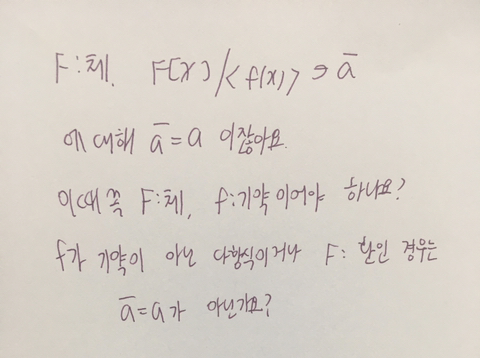 F:체. F[x]/<f(x)> ∋ ā
에 대해 ā = a 이잖아요.
이때 꼭 F:체, f:기약이어야 하나요?
f가 기약이 아닌 다항식이거나 F: 환인 경우는
ā=a가 아닌가요?